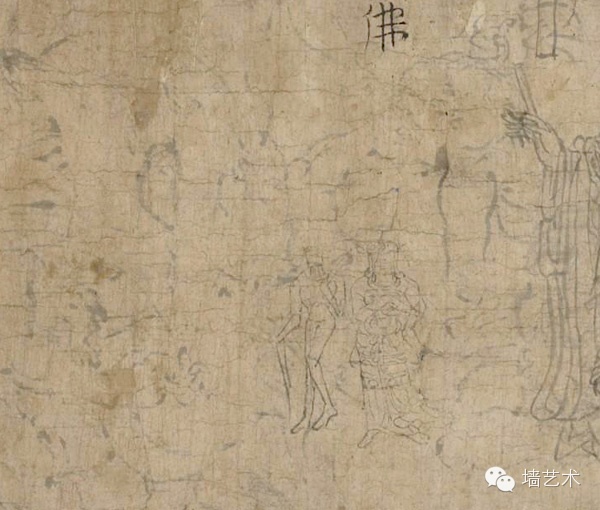 佛
墙艺术